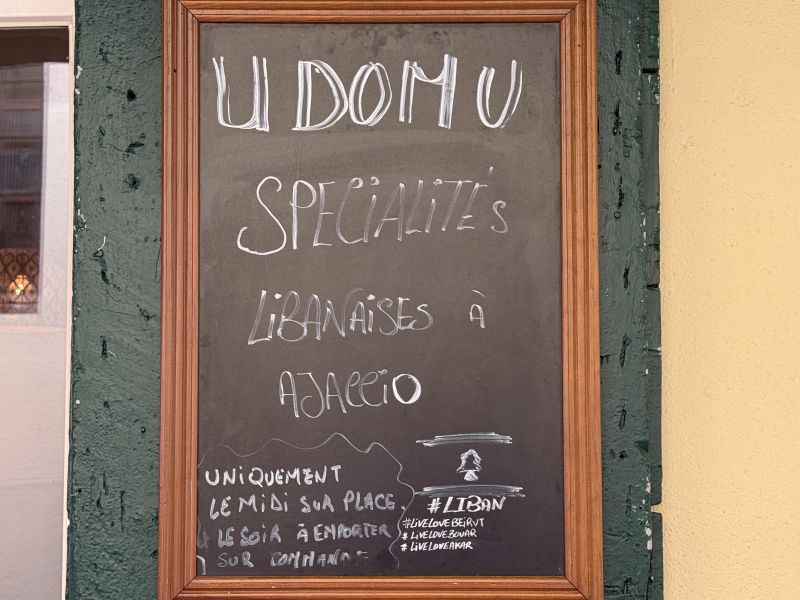 U DOMU
SPECiALiTÉs
LiBANAiSES À
AJACCiO
UNiQUEMENT
LE MiDi SUR PLACE
& LE SOiR À EMPORTER
SUR COMMANDE
#LIBAN
#LiVELOVEBEiRUT
# LiVELOVEBOUAR
# LiVELOVEAKAR